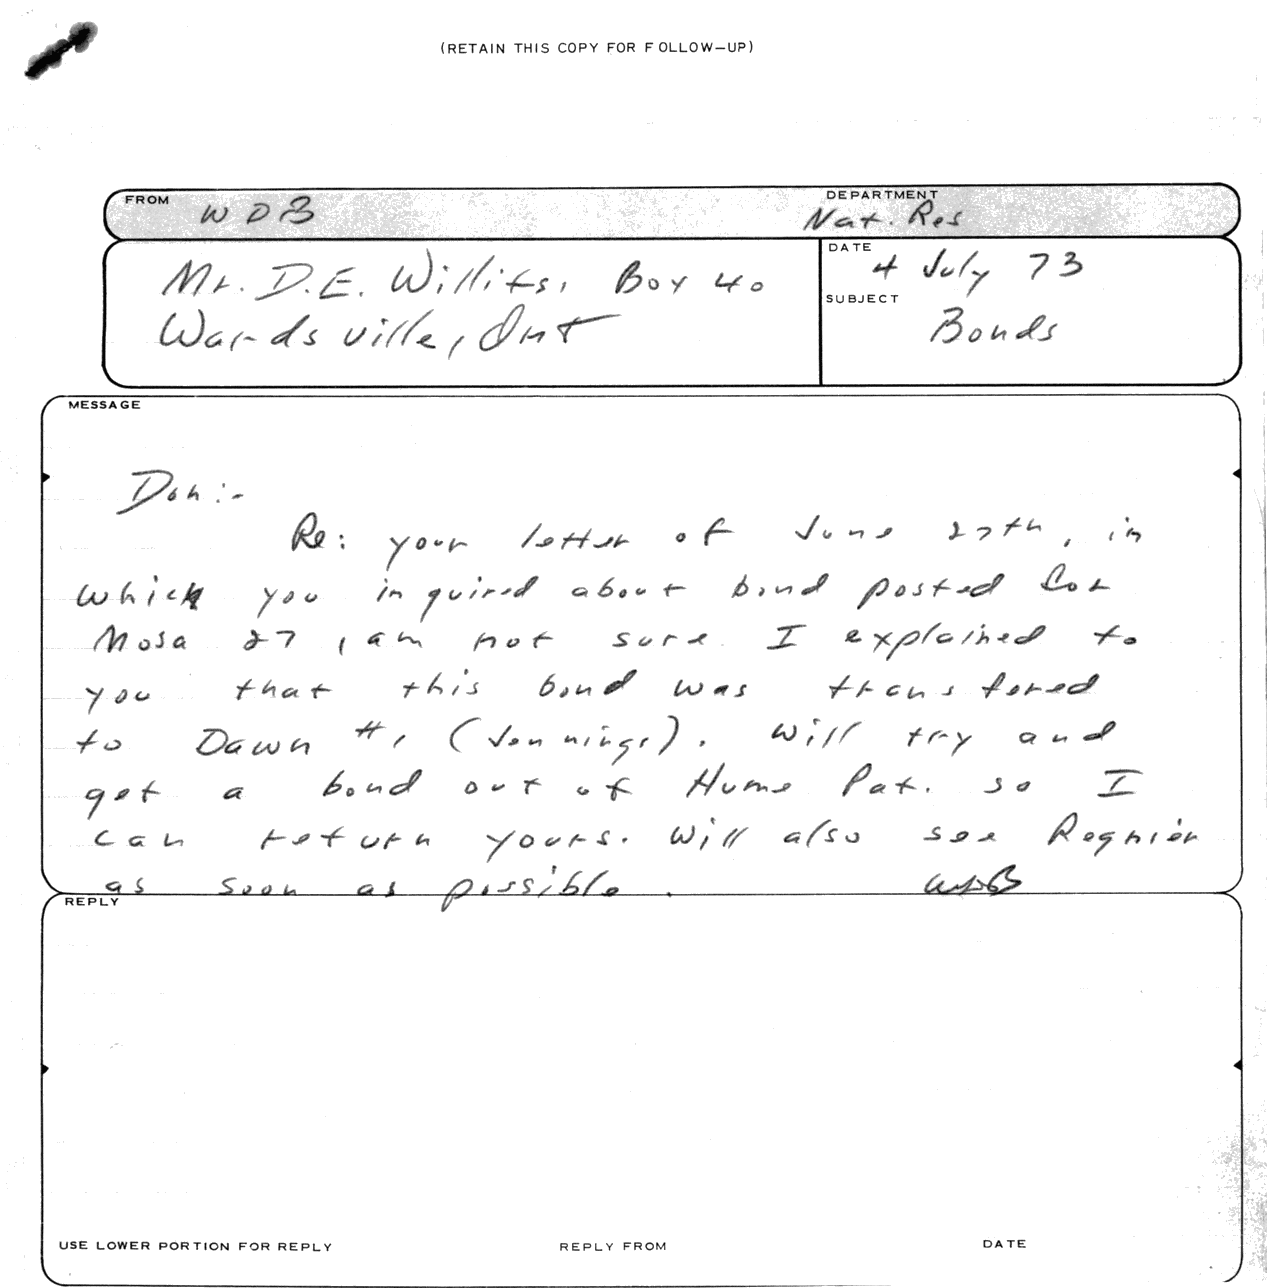 (RETAIN THIS COPY FOR FOLLOW-UP)
FROM WDB
DEPARTMENT
Nat. Res
Mr. D.E. Willits, Box 40
Wardsville, Ont
DATE 4 July 73
SUBJECT
Bonds
MESSAGE
Don:-
Re: your letter of June 27th, in
which you inquired about bond posted for
Mosa 27, am not sure I explained to
you that this bond was transfered
to Dawn #1 (Jennings). Will try and
get a bond out of Hume Pat. so I
can return yours. Will also see Regnier
as soon as possible. WDB
REPLY
USE LOWER PORTION FOR REPLY REPLY FROM DATE